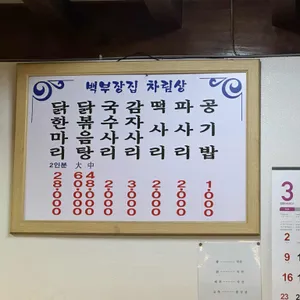 백부장집 차림상
닭한마리
2인분
28000
닭볶음탕
大 中
60000 48000
국수사리
2000
감자사리
3000
떡사리
2000
파사리
2000
공기밥
1000
3
2
9
16